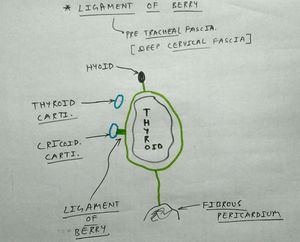 * LIGAMENT OF BERRY
PRE TRACHEAL FASCIA.
[DEEP CERVICAL FASCIA]
HYOID
THYROID
CARTI.
CRICOID.
CARTI.
THYROID
LIGAMENT
OF
BERRY
FIBROUS
PERICARDIUM